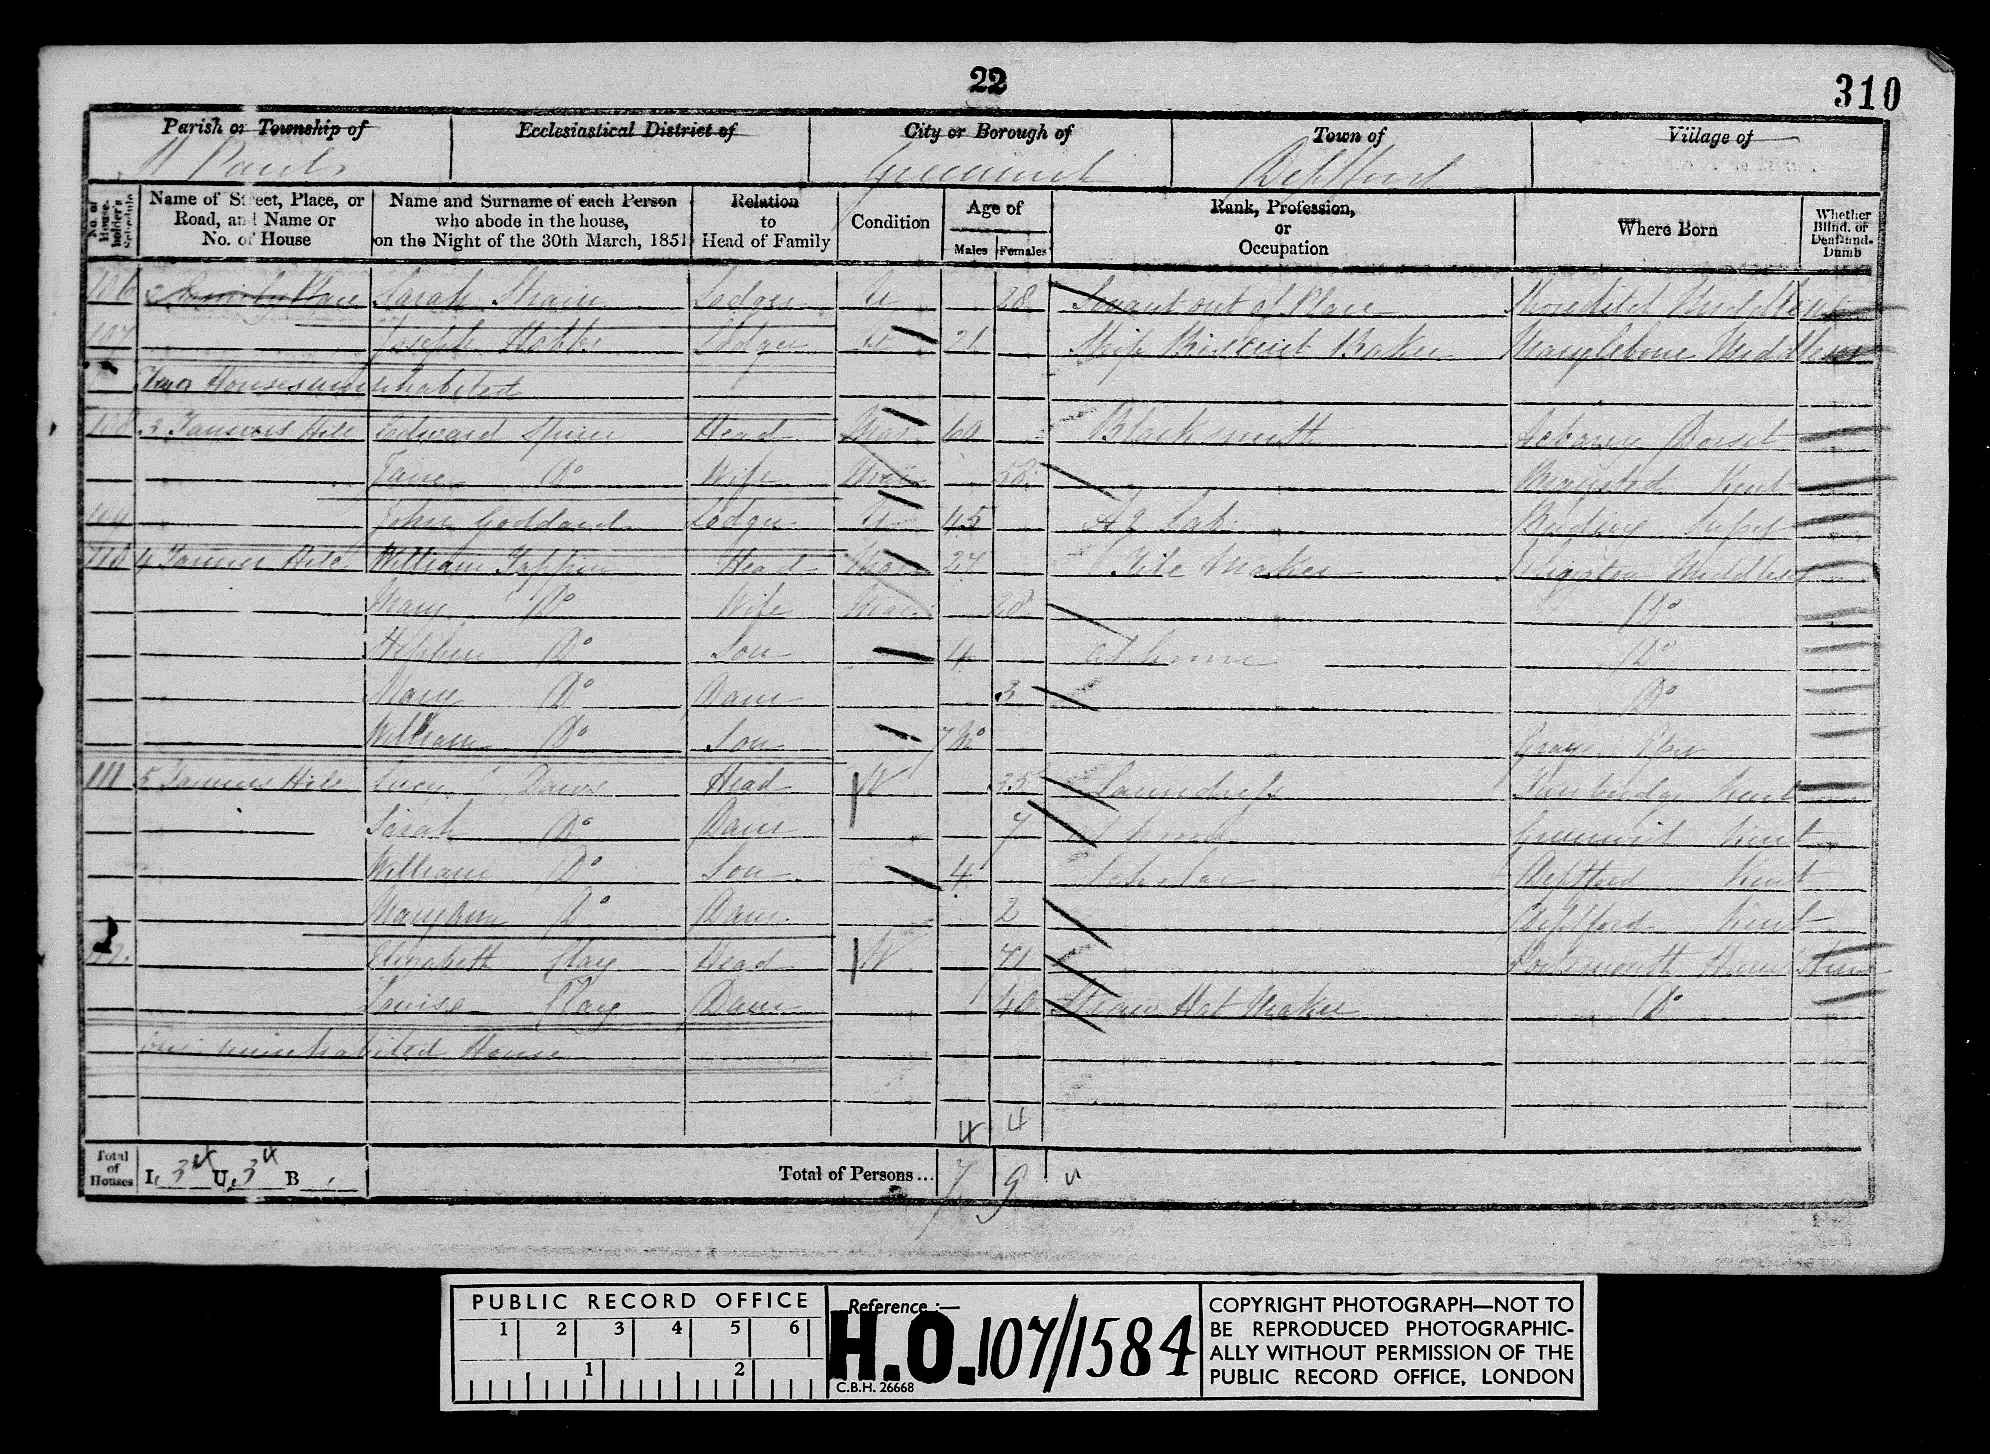 22
310
Parish or Township of
Ecclesiastical District of
City or Borough of
Town of
Village of
St Pauls
Greenwich
Deptford
No. of House-holder's Schedule
Name of Street, Place, or Road, and Name or No. of House
Name and Surname of each Person who abode in the house, on the Night of the 30th March, 1851
Relation to Head of Family
Condition
Age of
Males
Females
Rank, Profession, or Occupation
Where Born
Whether Blind, or Deaf-and-Dumb
106 2 Place Sarah Lodger U 28 Servant out of Place Middlesex
107 Joseph Hobbs Lodger U 21 Ship Biscuit Baker Marylebone Middlesex
Two Houses uninhabited
108 3 Tanners Hill Edward Head Mar 60 Blacksmith Dorset
Jane Do Wife Mar Kent
109 John Goddard Lodger U 45 Ag Lab
110 4 Tanners Hill William Head Mar 27 Maker Islington Middlesex
Mary Do Wife Mar 28 Do
Stephen Do Son 4 at home Do
Mary Do Daur 3 Do
William Do Son 7 Mo Grays
111 5 Tanners Hill Head W 35 Laundress Kent
Sarah Do Daur 7 at home Greenwich Kent
William Do Son 4 Scholar Deptford Kent
Mary Ann Do Daur 2 Deptford Kent
112 Elizabeth Clay Head W 71 Portsmouth Hampshire
Louisa Clay Daur 40 Straw Hat Maker Do
one uninhabited House
4 4
Total of Houses I. 3 4 U. 3 4 B
Total of Persons... 7 9
PUBLIC RECORD OFFICE
1 2 3 4 5 6
1 2
Reference :—
H.O. 107/1584
C.B.H. 26668
COPYRIGHT PHOTOGRAPH—NOT TO
BE REPRODUCED PHOTOGRAPHIC-
ALLY WITHOUT PERMISSION OF THE
PUBLIC RECORD OFFICE, LONDON